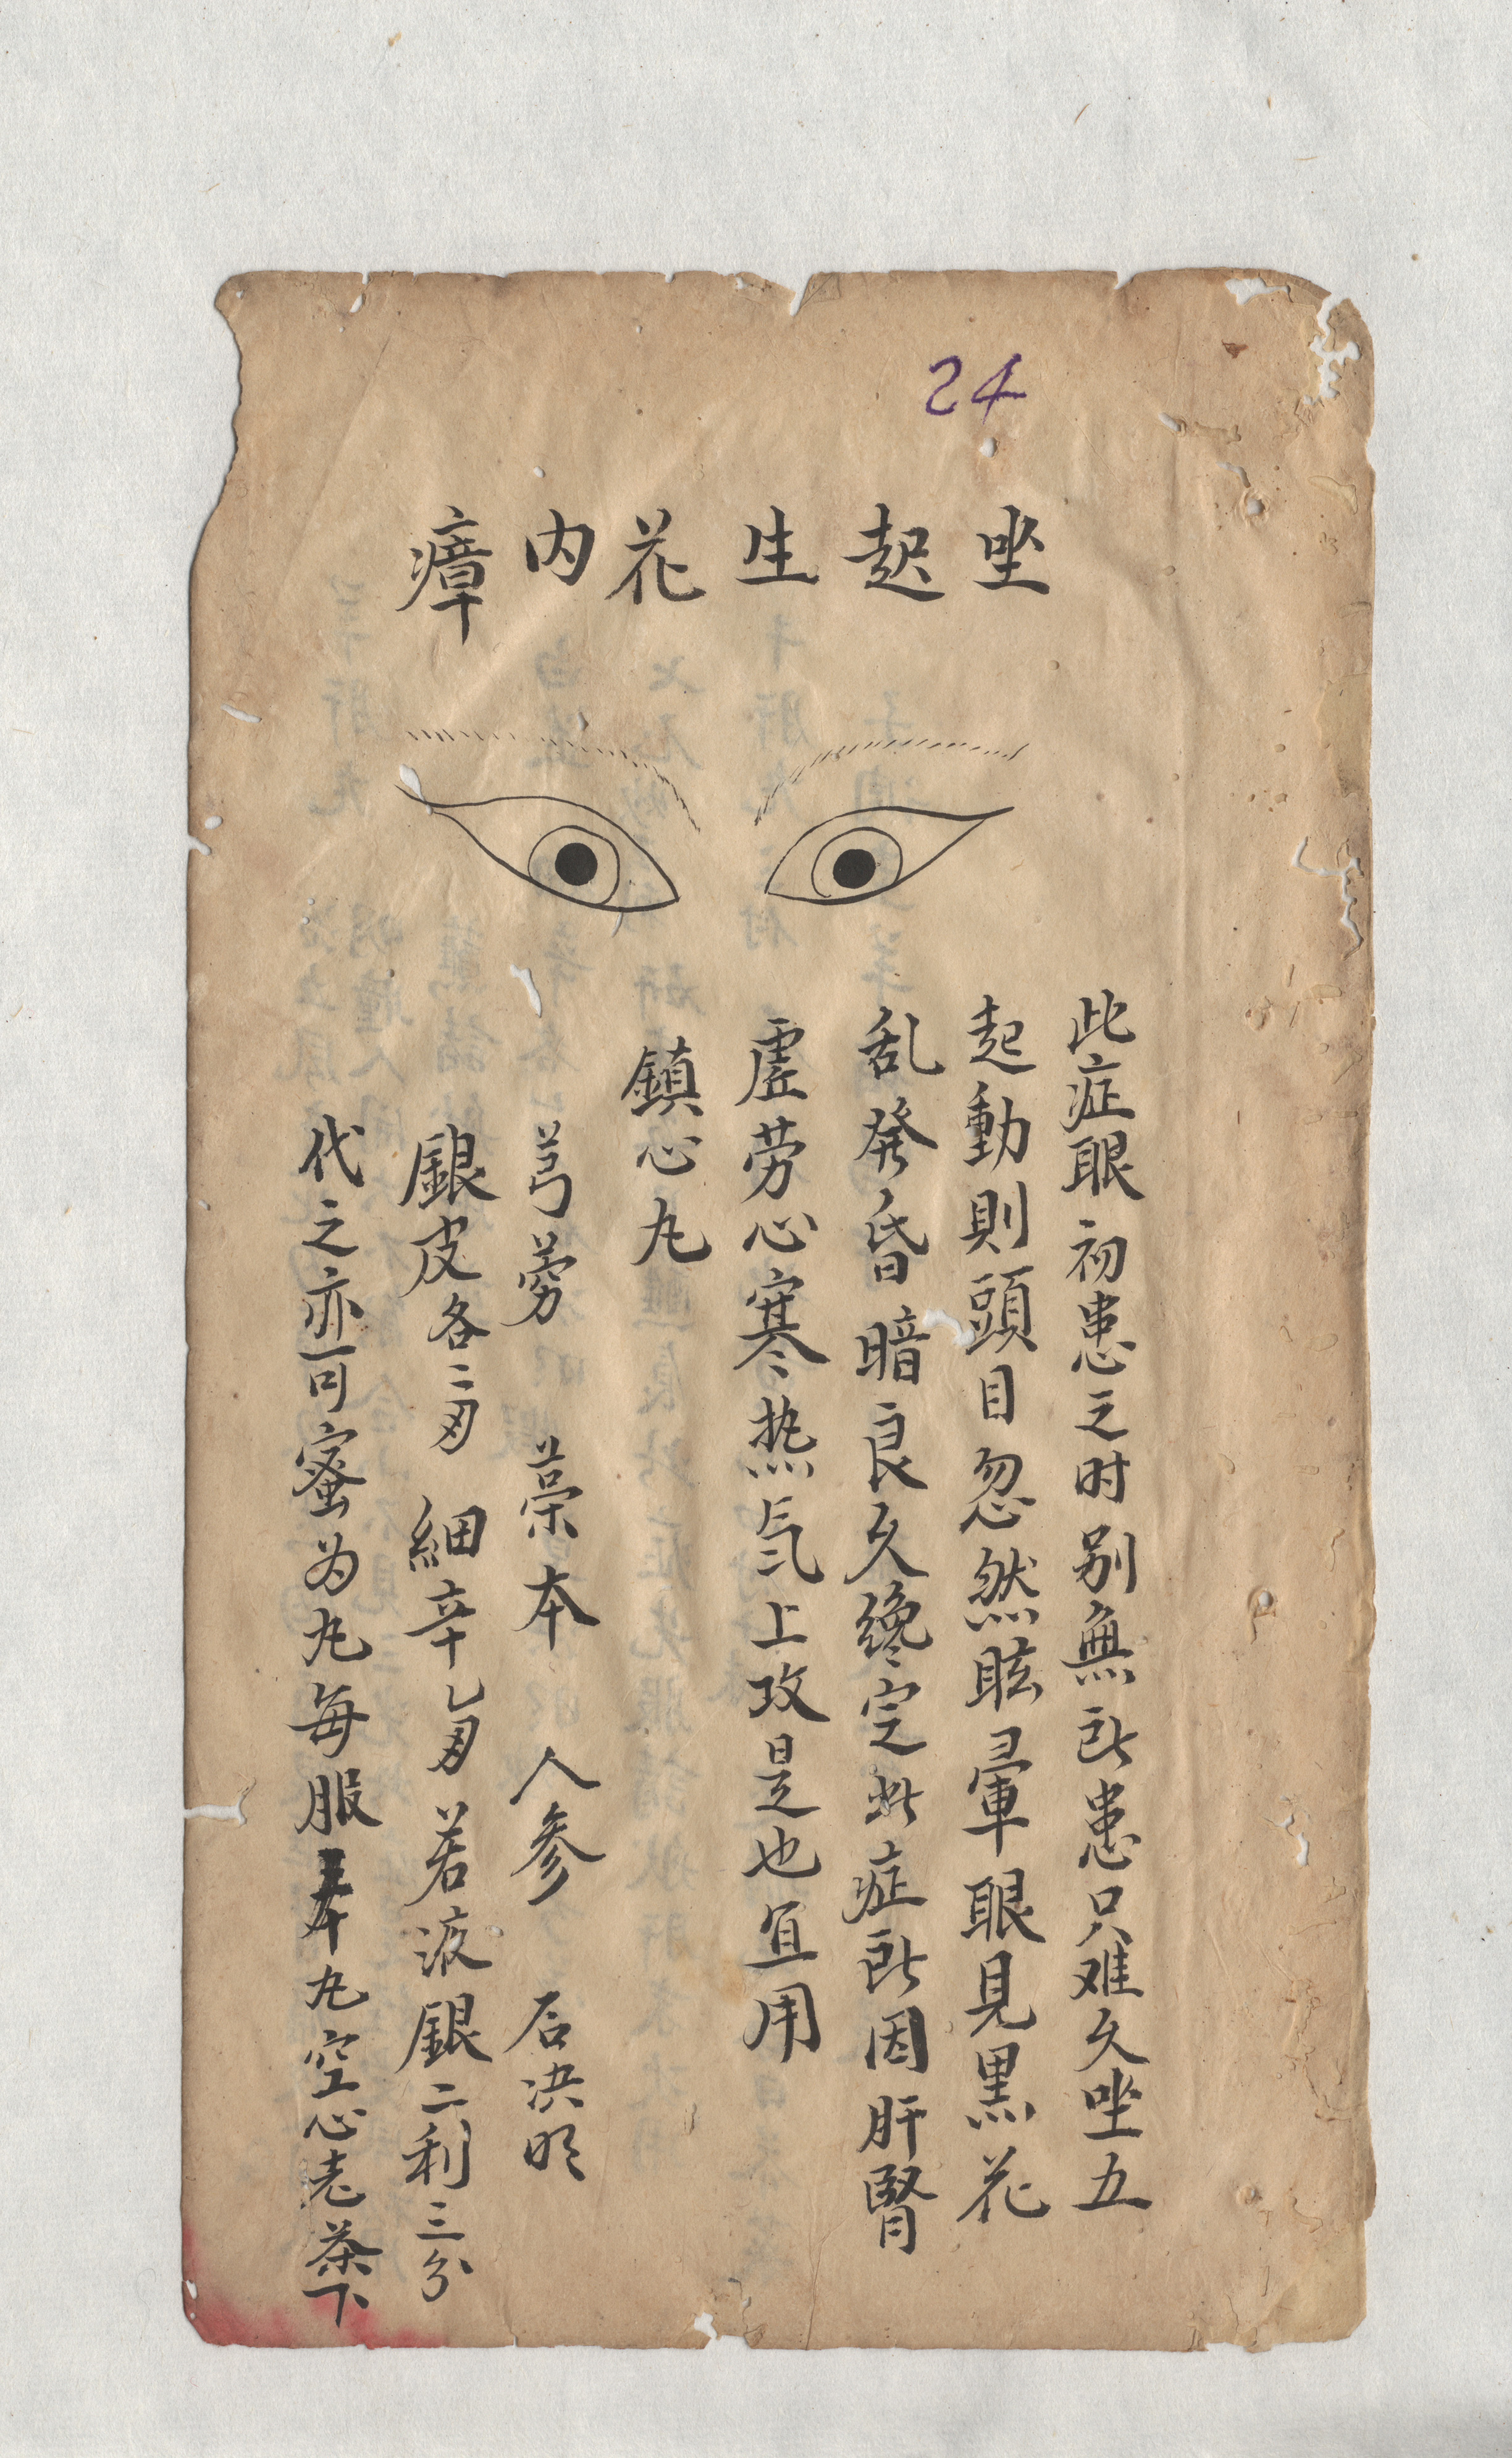 24
坐起生花内瘴
此症眼初患之时别無所患只难久坐五
起動則頭目忽然眩暈眼見黒花
乱発昏暗良久纔定此症所因肝腎
虚劳心寒热氕上攻是也宜用
鎮心丸
芎藭 藁本 人参 石决明
銀皮各二 細辛 若液銀二利三分
代之亦可蜜为丸每服 丸空心老茶下